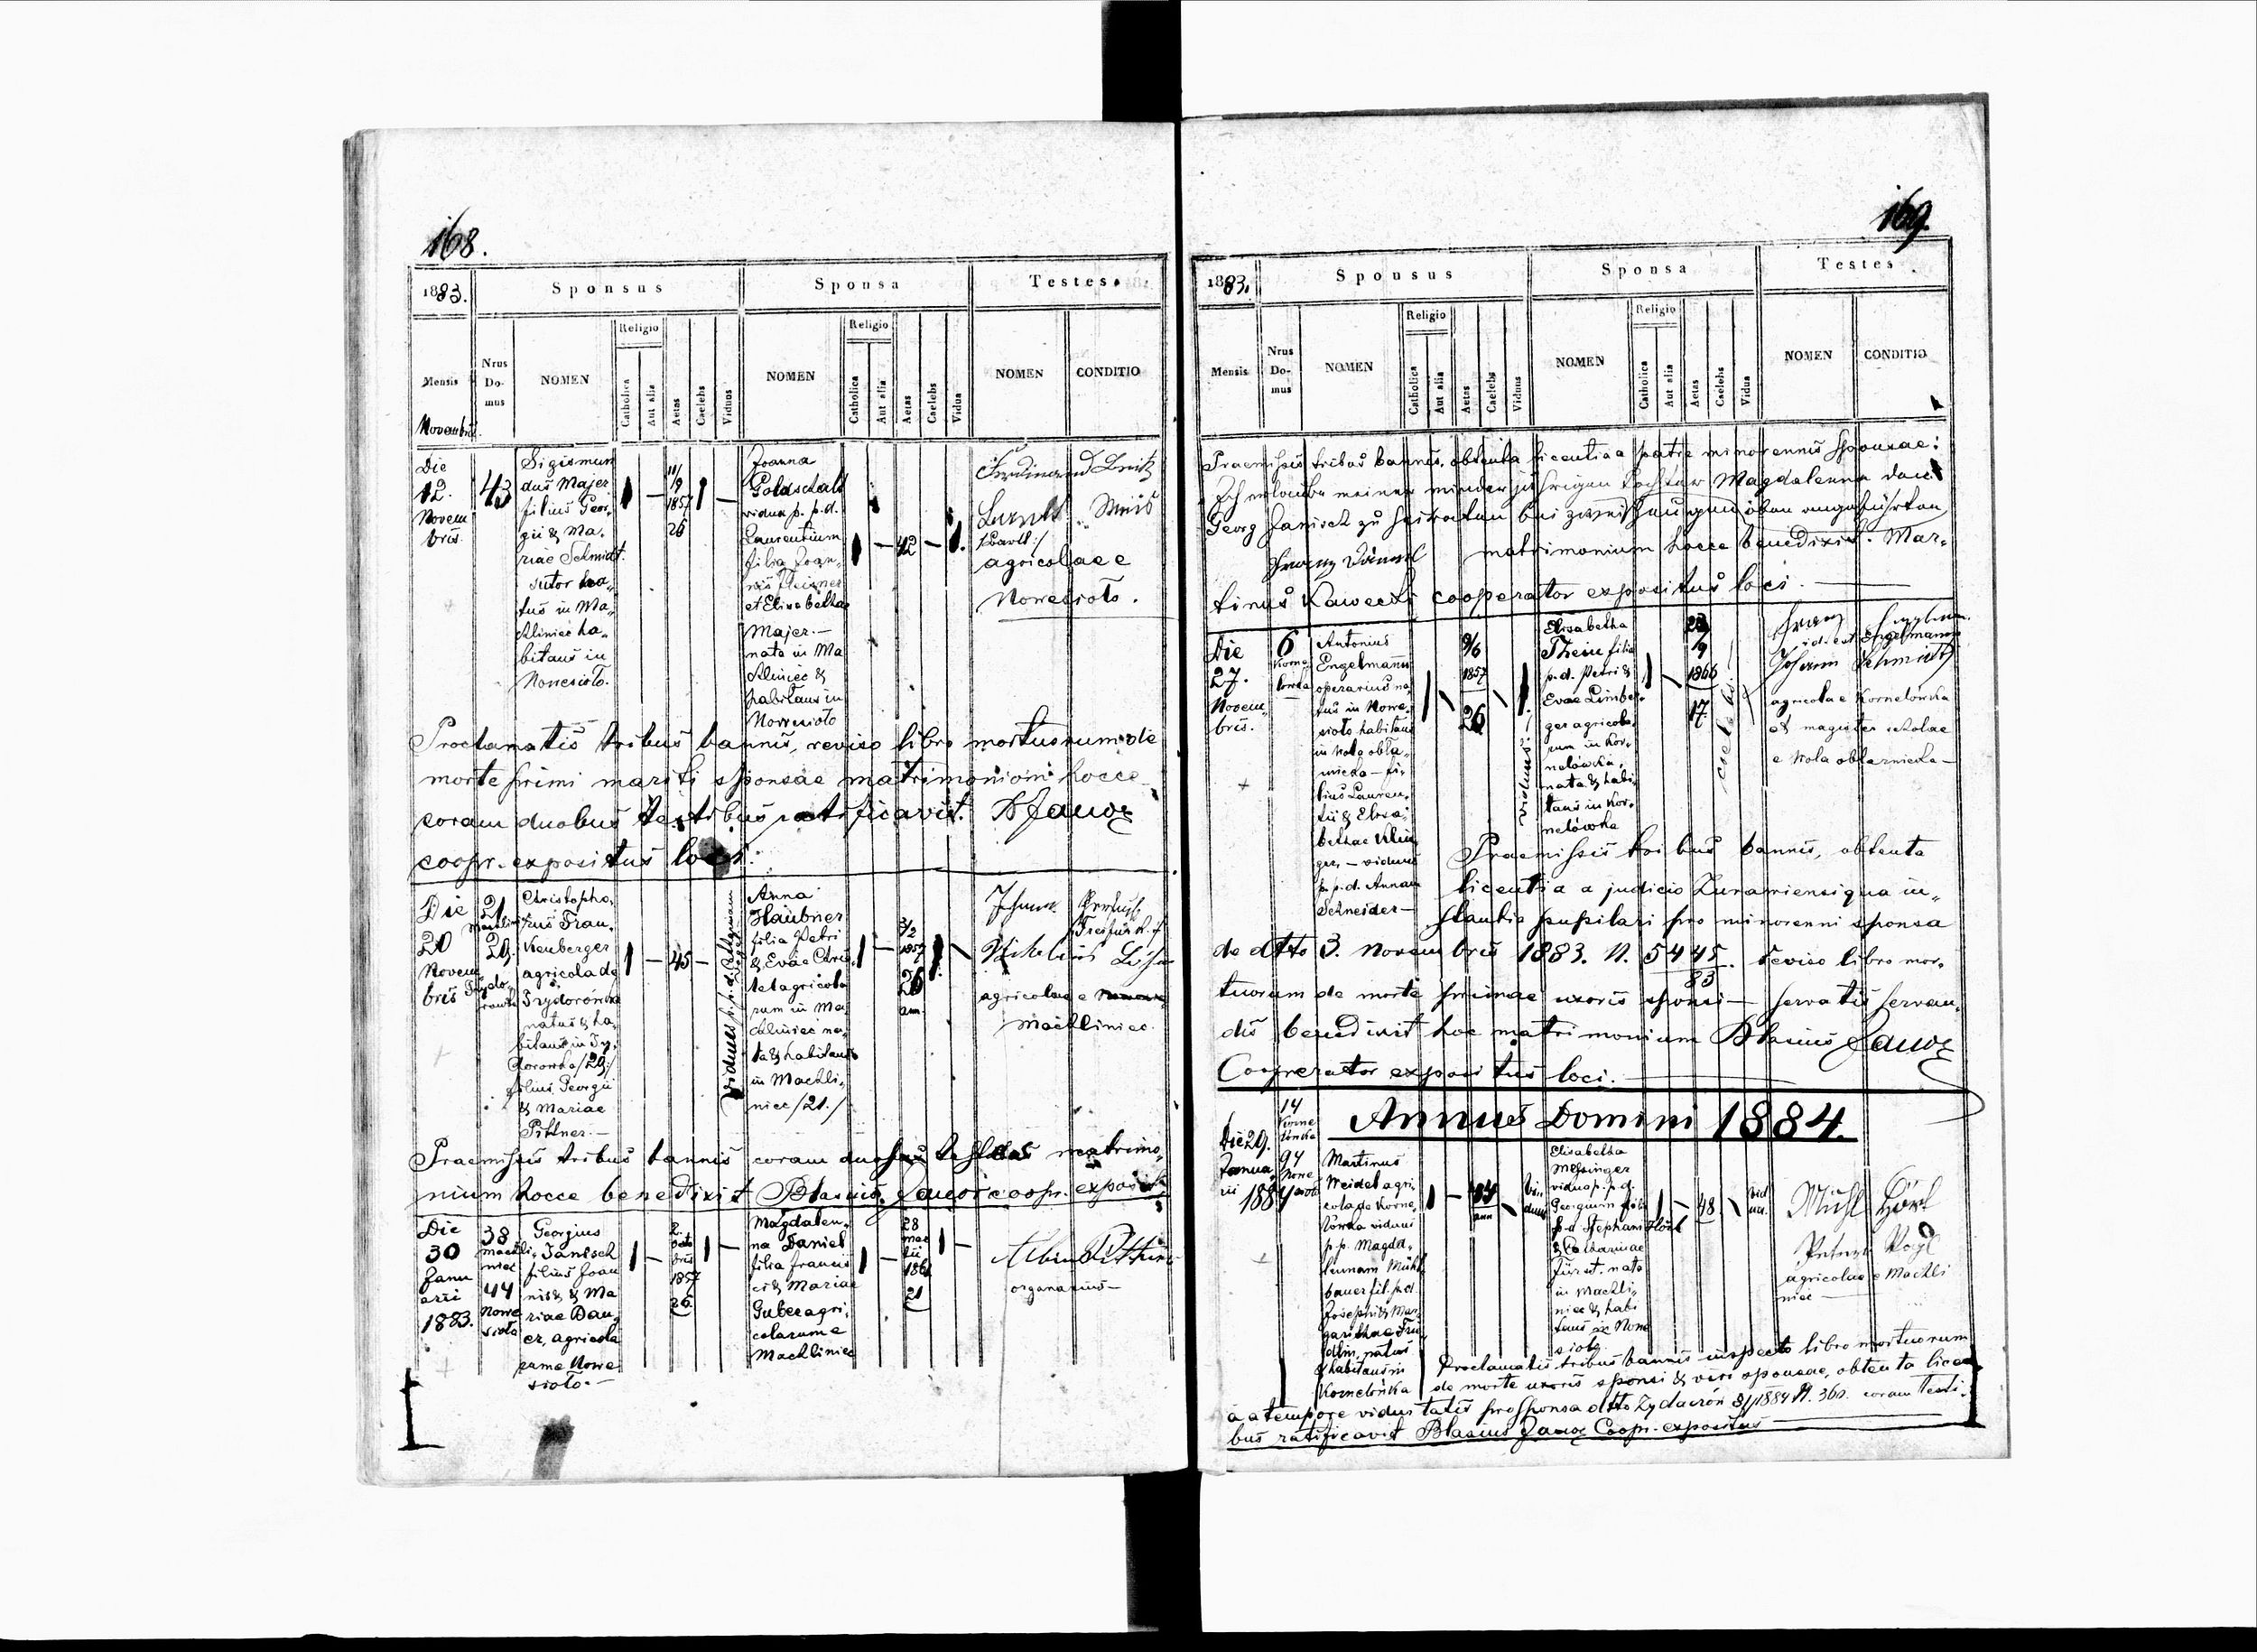 168.
1883.
Sponsus
Sponsa
Testes.
Mensis
Nrus Do- mus
NOMEN
Religio
Catholica
Aut alia
Aetas
Caelebs
Viduus
NOMEN
Religio
Catholica
Aut alia
Aetas
Caelebs
Vidua
NOMEN
CONDITIO
Novembris
Die
12.
Novem
bris.
43
Sigismun
dus Majer
filius Geor.
gii & Ma.
riae Schmidt.
sutor na„
tus in Ma„
chliniec ha„
bitans in
Nowesioło.
11/9
1857
26
Joanna
Goldschalt
vidua p. p. d.
Laurentium
filia Joan„
nis Fleizner
et Elisabethae
Majer.—
nata in Ma
chliniec &
habitans in
Nowesioło
42
Ferdinand
agricolae e
Nowesioło.
Proclamatis tribus bannis, reviso libro mortuorum de
morte primi mariti sponsae matrimonium hocce
coram duobus testibus ratificavit. B Jauoz
coopr. expositus loci.
Die
20
Novem
bris
21
Machliniec
29.
Christopho„
rus Frau„
kenberger
agricola de
Izydorówka
natus & ha„
bitans in Izy„
dorowka /29/
filius Georgii
& Mariae
Pittner.—
45
Anna
Haübner
filia Petri
& Evae Chri„
tel agricola
rum in Ma„
chliniec na„
ta & habitans
in Machli„
niec /21./
3/2
1857
26
ann.
agricolae e
Machliniec.
Praemissis tribus bannis coram duobus testibus matrimo„
nium hocce benedixit Blasius Jauoz coopr. exposit.
Die
30
Janu
arii
1883.
38
Machli„
niec
44
Nowe
sioło
Georgius
Janisch
filius Joan
nis & Ma
riae Dau„
er, agricola
rum e Nowe
sioło.—
2.
Octo
bris
1857
26.
Magdalen„
na Daniel
filia Francis
ci & Mariae
Guber agri„
colarum e
Machliniec
28
21
Albin
organarius—
169.
1883.
Sponsus
Sponsa
Testes
Mensis
Nrus Do- mus
NOMEN
Religio
Catholica
Aut alia
Aetas
Caelebs
Viduus
NOMEN
Religio
Catholica
Aut alia
Aetas
Caelebs
Vidua
NOMEN
CONDITIO
Praemissis tribus bannis, obtenta licentia a patre minorennis sponsae:
Ich erlaube meiner minderjährigen Tochter Magdalenna dem
Georg Janisch zu heiraten bei zwei Zeugen oben angeführten
Franz Daniel matrimonium hocce benedixit. Mar„
tinus Kawecki cooperator expositus loci.
Die
27.
Novem„
bris.
6
Korne
lówka
Antonius
Engelmann
operarius na„
tus in Nowe„
sioło habitans
in Wola obła„
znicka — fi„
lius Lauren„
tii & Elisa„
bethae Klin
ger, — viduus
p. p. d. Annam
Schneider—
9/6
1857
26
viduus
Elisabetha
Thein filia
p. d. Petri &
Evae Limber„
ger agricola„
rum in Kor„
nelówka,
nata & habi„
tans in Kor„
nelówka
9
1866
17.
caelebs
Franz
id est Engelmann
Johann Schmidt
agricola e Kornelówka
et magister scholae
e Wola obłaznicka—
Praemissis tribus bannis, obtenta
licentia a judicio Zurawiensi qua in„
stantia pupilari pro minorenni sponsa
de dtto 3. Novembris 1883. N. 5445. reviso libro mor„
83
tuorum de morte primae uxoris sponsi— servatis servan„
dis benedixit hoc matrimonium Blasius Jauoz
Cooperator expositus loci.
Annus Domini 1884.
Die 29.
Janua„
rii
1884
14
Korne
lówka
94
Nowe
sioło
Martinus
Weidel agri„
cola de Korne„
lówka viduus
p. p. Magda„
lennam Mühl
bauer fil. p. d.
Josephi & Mar„
garithae Frie
dlin, natus
& habitans in
Kornelówka
ann
vi„
duus
Elisabetha
Messinger
vidua p. p. d.
Georgium filia
p. d. Stephani Hösl
& Catharinae
Fürst. nata
in Machli„
niec & habi
tans in Nowe
sioło
48
vid
ua.
Mühl
agricolae e Machli
niec—
Proclamatis tribus bannis inspecto libro mortuorum
de morte uxoris sponsi & viri sponsae, obtenta licen
a a tempore viduitatis pro sponsa dtto Zydaczów 8/1 1884 N. 360. coram testi„
bus ratificavit Blasius Jauoz Coopr. expositus